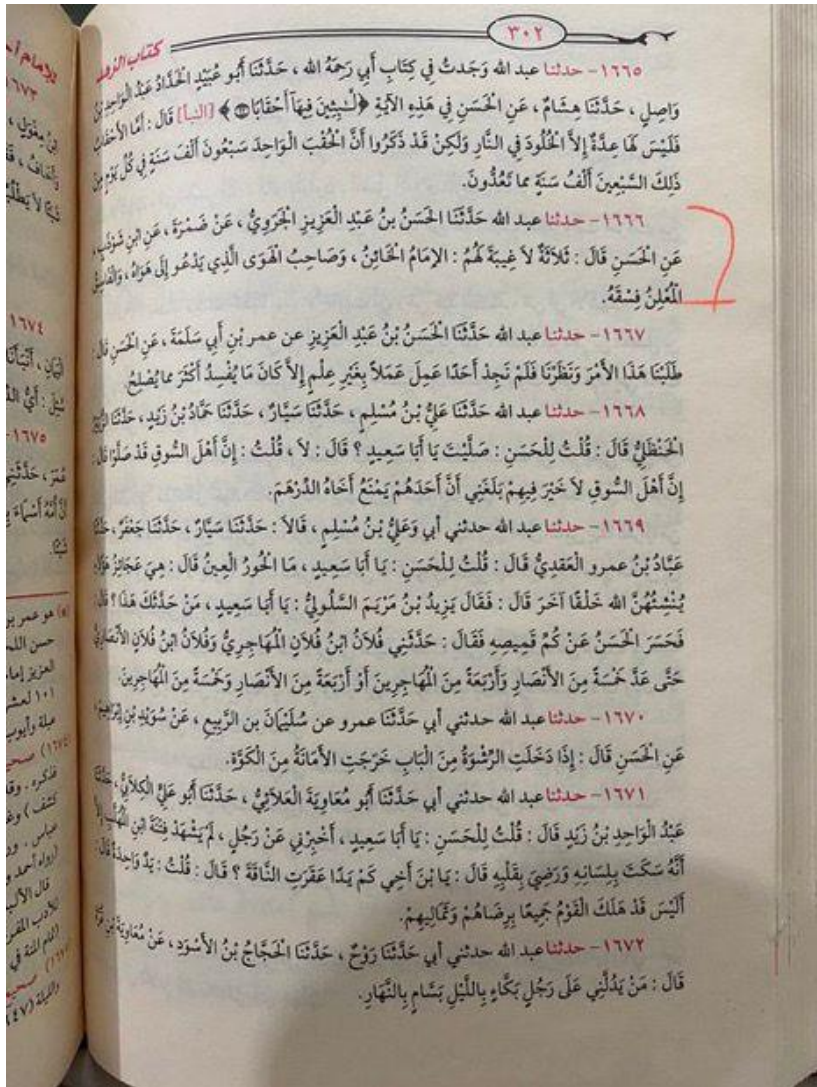 ٣٠٢
كتاب الزهد
١٦٦٥- حدثنا عبد الله وَجَدتُ فِي كِتَابِ أَبِي رَحِمَهُ الله ، حَدَّثَنَا أَبُو عُبَيْدٍ الْحَدَّادُ عَبْدُ الْوَاحِدِ بْنُ
وَاصِلٍ ، حَدَّثَنَا هِشَامٌ ، عَنِ الْحَسَنِ فِي هَذِهِ الآيَةِ ﴿لَّـٰبِثِينَ فِيهَآ أَحْقَابًا ۝﴾ [النبأ] قَالَ : أمَّا الأَحْقَابُ
فَلَيْسَ لَهَا عِدَّةٌ إِلاَّ الْخُلُودَ فِي النَّارِ وَلَكِنْ قَدْ ذَكَرُوا أَنَّ الْحُقْبَ الْوَاحِدَ سَبْعُونَ أَلْفَ سَنَةٍ فِي كُلِّ يَوْمٍ مِنْ
ذَلِكَ السَّبْعِينَ أَلْفُ سَنَةٍ مما تَعُدُّونَ.
١٦٦٦- حدثنا عبد الله حَدَّثَنَا الْحَسَنُ بنُ عَبْدِ الْعَزِيزِ الْجَرَوِيُّ ، عَنْ ضَمْرَةَ ، عَنِ ابْنِ شَوْذَبٍ ،
عَنِ الْحَسَنِ قَالَ : ثَلاَثَةٌ لاَ غِيبَةَ لَهُمْ : الإِمَامُ الْخَائِنُ ، وَصَاحِبُ الْهَوَى الَّذِي يَدْعُو إِلَى هَوَاهُ ، وَالْفَاسِقُ
الْمُعْلِنُ فِسْقَهُ.
١٦٦٧- حدثنا عبد الله حَدَّثَنَا الْحَسَنُ بْنُ عَبْدِ الْعَزِيزِ عن عمر بْنِ أَبِي سَلَمَةَ ، عَنِ الْحَسَنِ قَالَ :
طَلَبْنَا هَذَا الأَمْرَ وَنَظَرْنَا فَلَمْ نَجِدْ أَحَدًا عَمِلَ عَمَلاً بِغَيْرِ عِلْمٍ إِلاَّ كَانَ مَا يُفْسِدُ أَكْثَرَ مما يُصْلِحُ.
١٦٦٨- حدثنا عبد الله حَدَّثَنَا عَلِيُّ بْنُ مُسْلِمٍ ، حَدَّثَنَا سَيَّارٌ ، حَدَّثَنَا حَمَّادُ بْنُ زَيْدٍ، حَدَّثَنَا الزُّبَيْرُ
الْحَنْظَلِيُّ قَالَ : قُلْتُ لِلْحَسَنِ : صَلَّيْتَ يَا أَبَا سَعِيدٍ ؟ قَالَ : لاَ ، قُلْتُ : إِنَّ أَهْلَ السُّوقِ قَدْ صَلَّوْا قَالَ :
إِنَّ أَهْلَ السُّوقِ لاَ خَيْرَ فِيهِمْ بَلَغَنِي أَنَّ أَحَدَهُمْ يَمْنَعُ أَخَاهُ الدِّرْهَمَ.
١٦٦٩- حدثنا عبد الله حدثني أبي وَعَلِيُّ بْنُ مُسْلِمٍ ، قَالاَ : حَدَّثَنَا سَيَّارٌ ، حَدَّثَنَا جَعْفَرٌ ، حَدَّثَنَا
عَبَّادُ بْنُ عمرو الْعَقدِيُّ قَالَ : قُلْتُ لِلْحَسَنِ : يَا أَبَا سَعِيدٍ ، مَا الْحُورُ الْعِينُ قَالَ : هِيَ عَجَائِزُ هَؤُلاَءِ
يُنْشِئُهُنَّ الله خَلْقًا آخَرَ قَالَ : فَقَالَ يَزِيدُ بْنُ مَرْيَمَ السَّلُولِيُّ : يَا أَبَا سَعِيدٍ ، مَنْ حَدَّثَكَ هَذَا ؟ قَالَ :
فَحَسَرَ الْحَسَنُ عَنْ كُمِّ قَمِيصِهِ فَقَالَ : حَدَّثَنِي فُلاَنُ ابْنُ فُلاَنٍ الْمُهَاجِرِيُّ وَفُلاَنُ ابْنُ فُلاَنٍ الأَنْصَارِيُّ
حَتَّى عَدَّ خَمْسَةً مِنَ الأَنْصَارِ وَأَرْبَعَةً مِنَ الْمُهَاجِرِينَ أَوْ أَرْبَعَةً مِنَ الأَنْصَارِ وَخَمْسَةً مِنَ الْمُهَاجِرِينَ.
١٦٧٠- حدثنا عبد الله حدثني أبي حَدَّثَنَا عمرو عن سُلَيْمَانَ بن الرَّبِيعِ ، عَنْ سُوَيْدِ بْنِ إِبْرَاهِيمَ ،
عَنِ الْحَسَنِ قَالَ : إِذَا دَخَلَتِ الرِّشْوَةُ مِنَ الْبَابِ خَرَجَتِ الأَمَانَةُ مِنَ الْكَوَّةِ.
١٦٧١- حدثنا عبد الله حدثني أبي حَدَّثَنَا أَبُو مُعَاوِيَةَ الْعَلاَئِيُّ ، حَدَّثَنَا أَبُو عَلِيٍّ الْكِلاَبِيُّ ، حَدَّثَنَا
عَبْدُ الْوَاحِدِ بْنُ زَيْدٍ قَالَ : قُلْتُ لِلْحَسَنِ : يَا أَبَا سَعِيدٍ ، أَخْبِرْنِي عَنْ رَجُلٍ ، لَمْ يَشْهَدْ فِتْنَةَ ابْنِ الْمُهَلَّبِ إِلاَّ
أَنَّهُ سَكَتَ بِلِسَانِهِ وَرَضِيَ بِقَلْبِهِ قَالَ : يَا بْنَ أَخِي كَمْ يَدًا عَقَرَتِ النَّاقَةَ ؟ قَالَ : قُلْتُ : يَدٌ وَاحِدَةٌ قَالَ :
أَلَيْسَ قَدْ هَلَكَ الْقَوْمُ جَمِيعًا بِرِضَاهُمْ وَتَمَالِيهِمْ.
١٦٧٢- حدثنا عبد الله حدثني أبي حَدَّثَنَا رَوْحٌ ، حَدَّثَنَا الْحَجَّاجُ بْنُ الأَسْوَدِ ، عَنْ مُعَاوِيَةَ بْنِ قُرَّةَ
قَالَ : مَنْ يَدُلُّنِي عَلَى رَجُلٍ بَكَّاءٍ بِاللَّيْلِ بَسَّامٍ بِالنَّهَارِ.